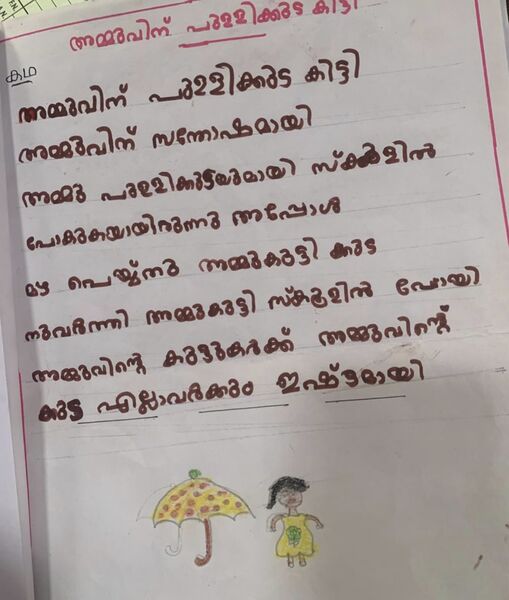 അമ്മുവിന് പുള്ളിക്കുട കിട്ടി
കഥ
അമ്മുവിന് പുള്ളിക്കുട കിട്ടി
അമ്മുവിന് സന്തോഷമായി
അമ്മു പുള്ളിക്കുടയുമായി സ്ക്കൂളിൽ
പോകുകയായിരുന്നു അപ്പോൾ
മഴ പെയ്യ്തു അമ്മുകുട്ടി കുട
നുവർത്തി അമ്മുകുട്ടി സ്കൂളിൽ പോയി
അമ്മുവിന്റെ കുട്ടുകർക്ക് അമ്മുവിന്റെ
കുട എല്ലാവർക്കും ഇഷ്ട്ടമായി